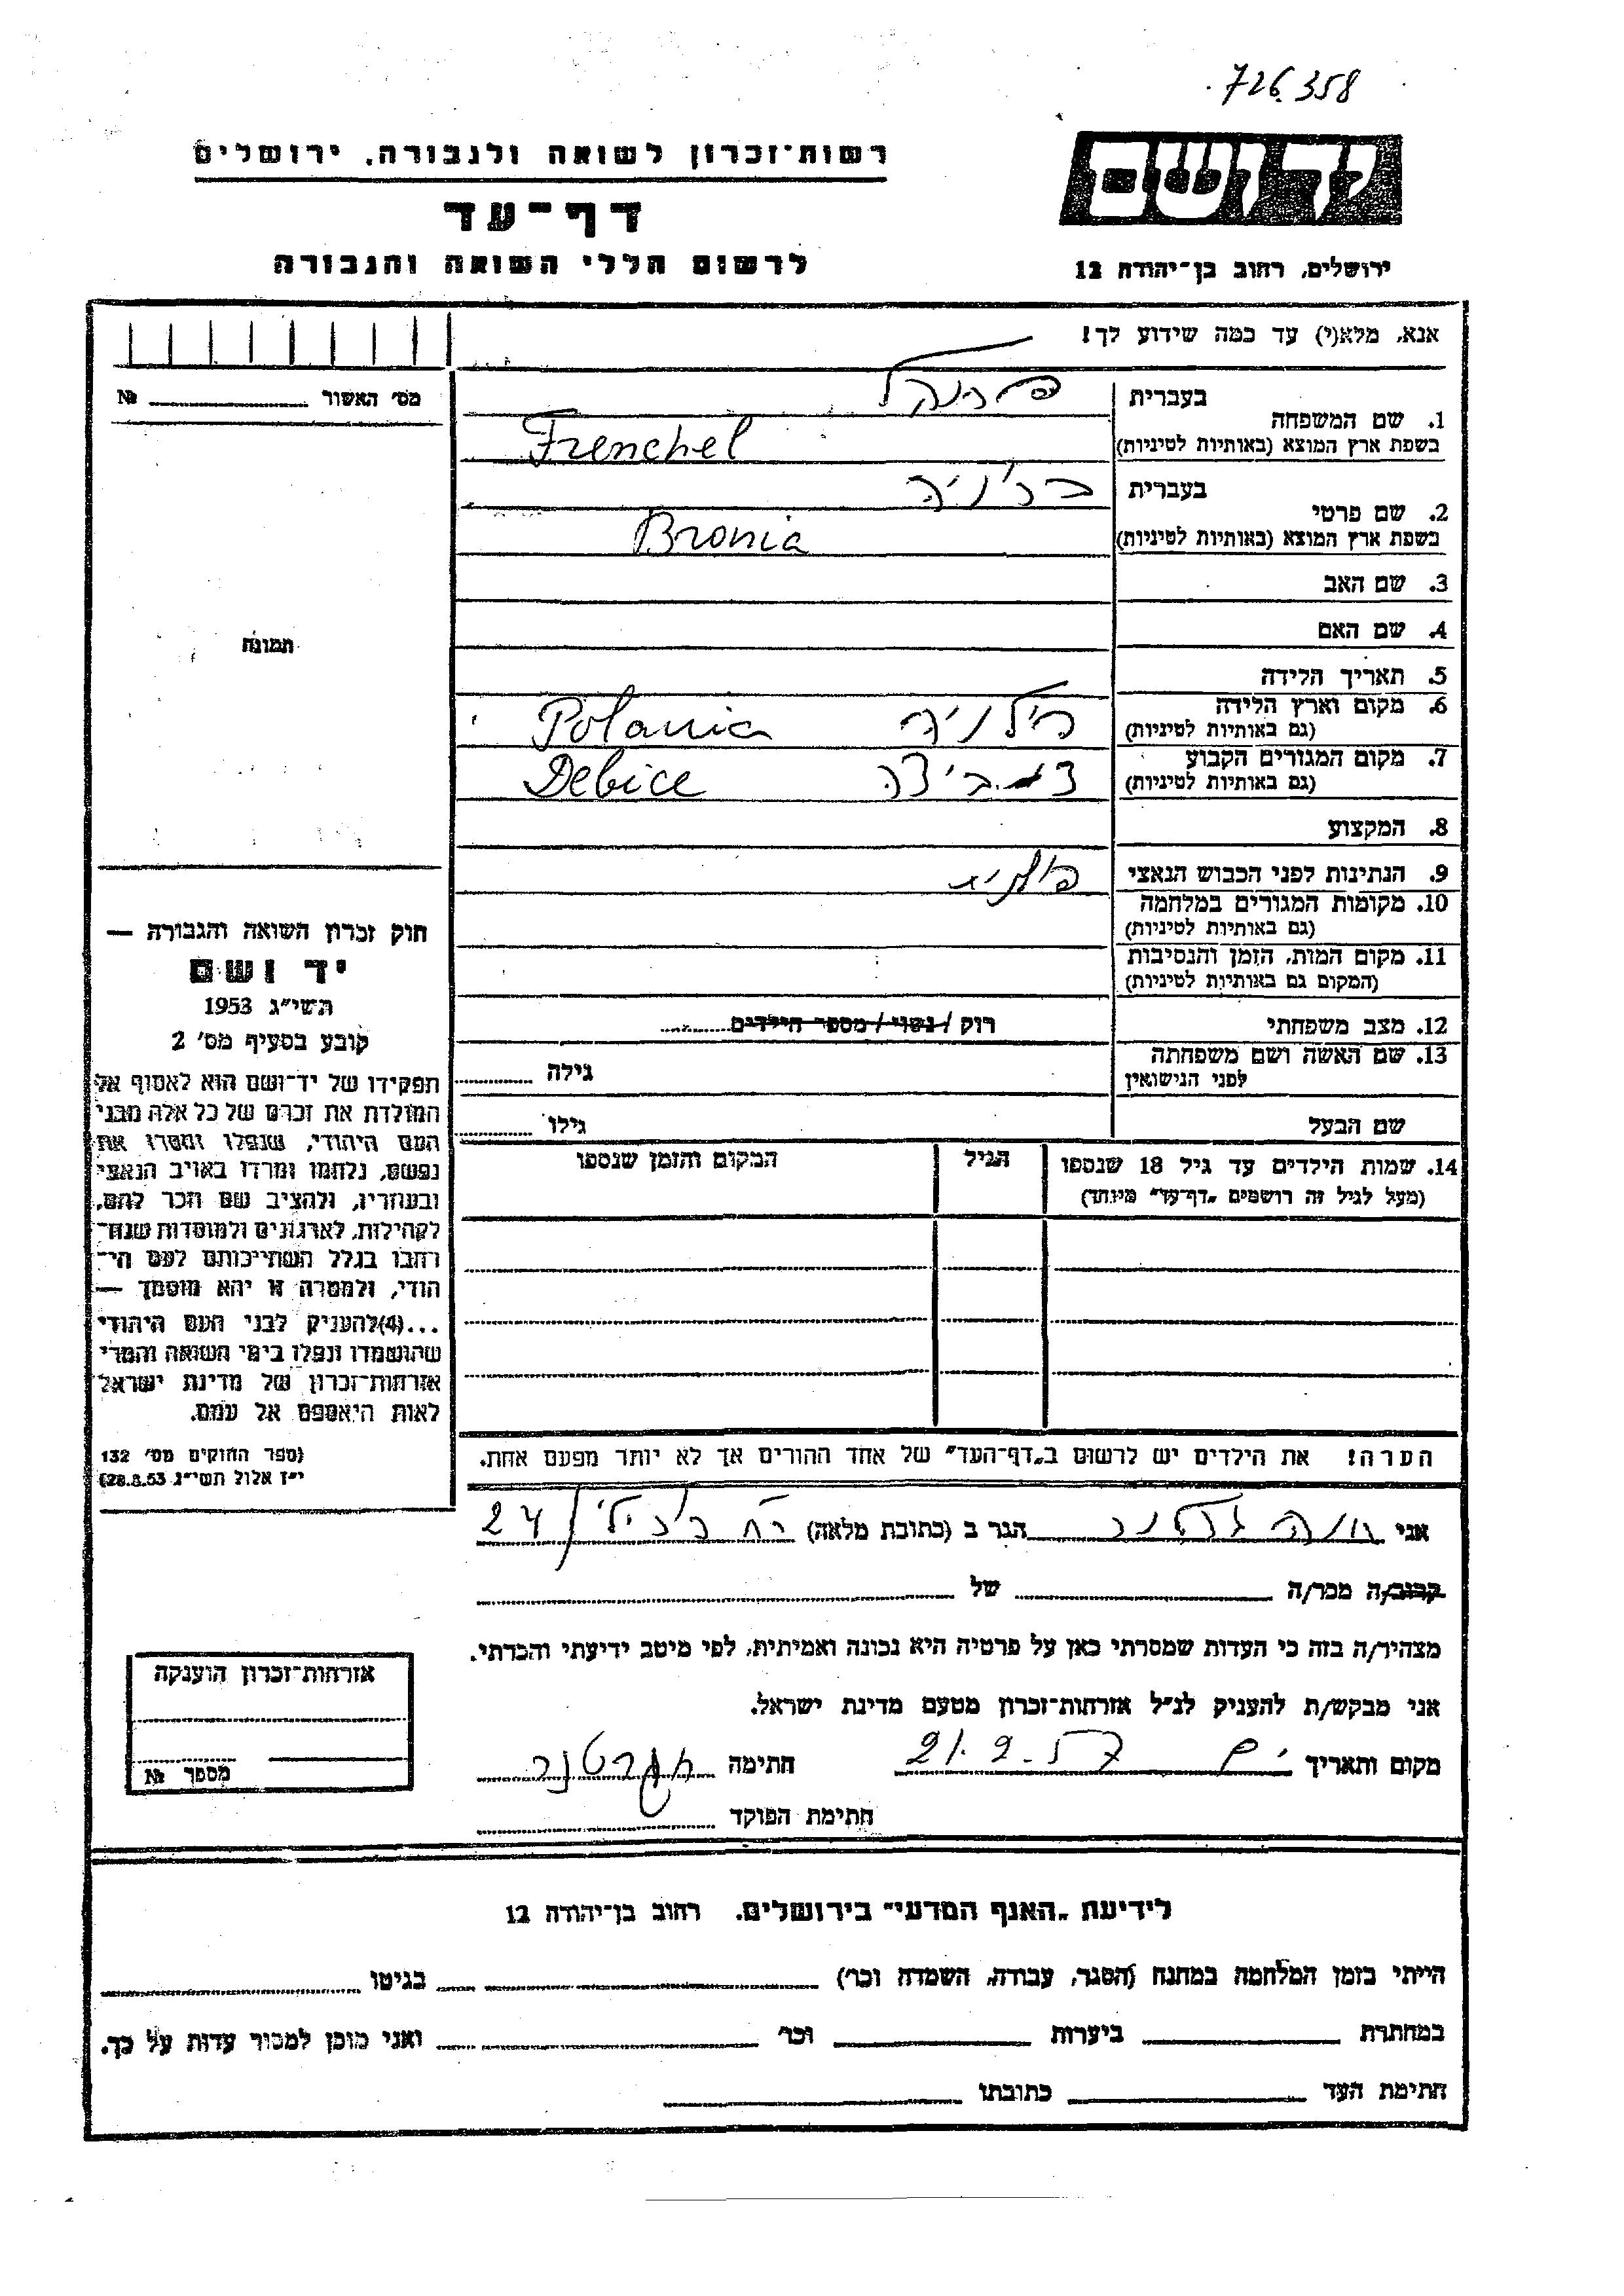 726.358
יד ושם
רשות־זכרון לשואה ולגבורה, ירושלים
דף־עד
לרשום חללי השואה והגבורה
ירושלים, רחוב בן־יהודה 12
אנא, מלא(י) עד כמה שידוע לך!
מס׳ האשור №
בעברית פרנקל
1. שם המשפחה
בשפת ארץ המוצא (באותיות לטיניות) Frenchel
בעברית ברוניה
2. שם פרטי
בשפת ארץ המוצא (באותיות לטיניות) Bronia
3. שם האב
4. שם האם
תמונה
5. תאריך הלידה
6. מקום וארץ הלידה
(גם באותיות לטיניות) פולניה Polania
7. מקום המגורים הקבוע
(גם באותיות לטיניות) דמביצה Debice
8. המקצוע
9. הנתינות לפני הכבוש הנאצי
10. מקומות המגורים במלחמה
(גם באותיות לטיניות)
11. מקום המות, הזמן והנסיבות
(המקום גם באותיות לטיניות)
12. מצב משפחתי רוק / נשוי / מספר הילדים
13. שם האשה ושם משפחתה
לפני הנישואין גילה
שם הבעל גילו
14. שמות הילדים עד גיל 18 שנספו הגיל המקום והזמן שנספו
(מעל לגיל זה רושמים „דף־עד״ מיוחד)
חוק זכרון השואה והגבורה —
יד ושם
תשי״ג 1953
קובע בסעיף מס׳ 2
תפקידו של יד־ושם הוא לאסוף אל
המולדת את זכרם של כל אלה מבני
העם היהודי, שנפלו ומסרו את
נפשם, נלחמו ומרדו באויב הנאצי
ובעוזריו, ולהציב שם וזכר להם,
לקהילות, לארגונים ולמוסדות שנח־
רבו בגלל השתייכותם לעם הי־
הודי, ולמטרה זו יהא מוסמך —
...(4)להעניק לבני העם היהודי
שהושמדו ונפלו בימי השואה והמרי
אזרחות־זכרון של מדינת ישראל
לאות היאספם אל עמם.
(ספר החוקים מס׳ 132
י״ז אלול תשי״ג 28.8.53)
הערה! את הילדים יש לרשום ב„דף־העד״ של אחד ההורים אך לא יותר מפעם אחת.
אני הגר ב (כתובת מלאה) 24
קרוב/ה מכר/ה של
מצהיר/ה בזה כי העדות שמסרתי כאן על פרטיה היא נכונה ואמיתית, לפי מיטב ידיעתי והכרתי.
אני מבקש/ת להעניק לנ״ל אזרחות־זכרון מטעם מדינת ישראל.
מקום ותאריך חתימה
חתימת הפוקד
אזרחות־זכרון הוענקה
מספר №
לידיעת „האגף המדעי״ בירושלים, רחוב בן־יהודה 12
הייתי בזמן המלחמה במחנה (הסגר, עבודה, השמדה וכו׳) בגיטו
במחתרת ביערות וכו׳ ואני מוכן למסור עדות על כך.
חתימת העד כתובתו